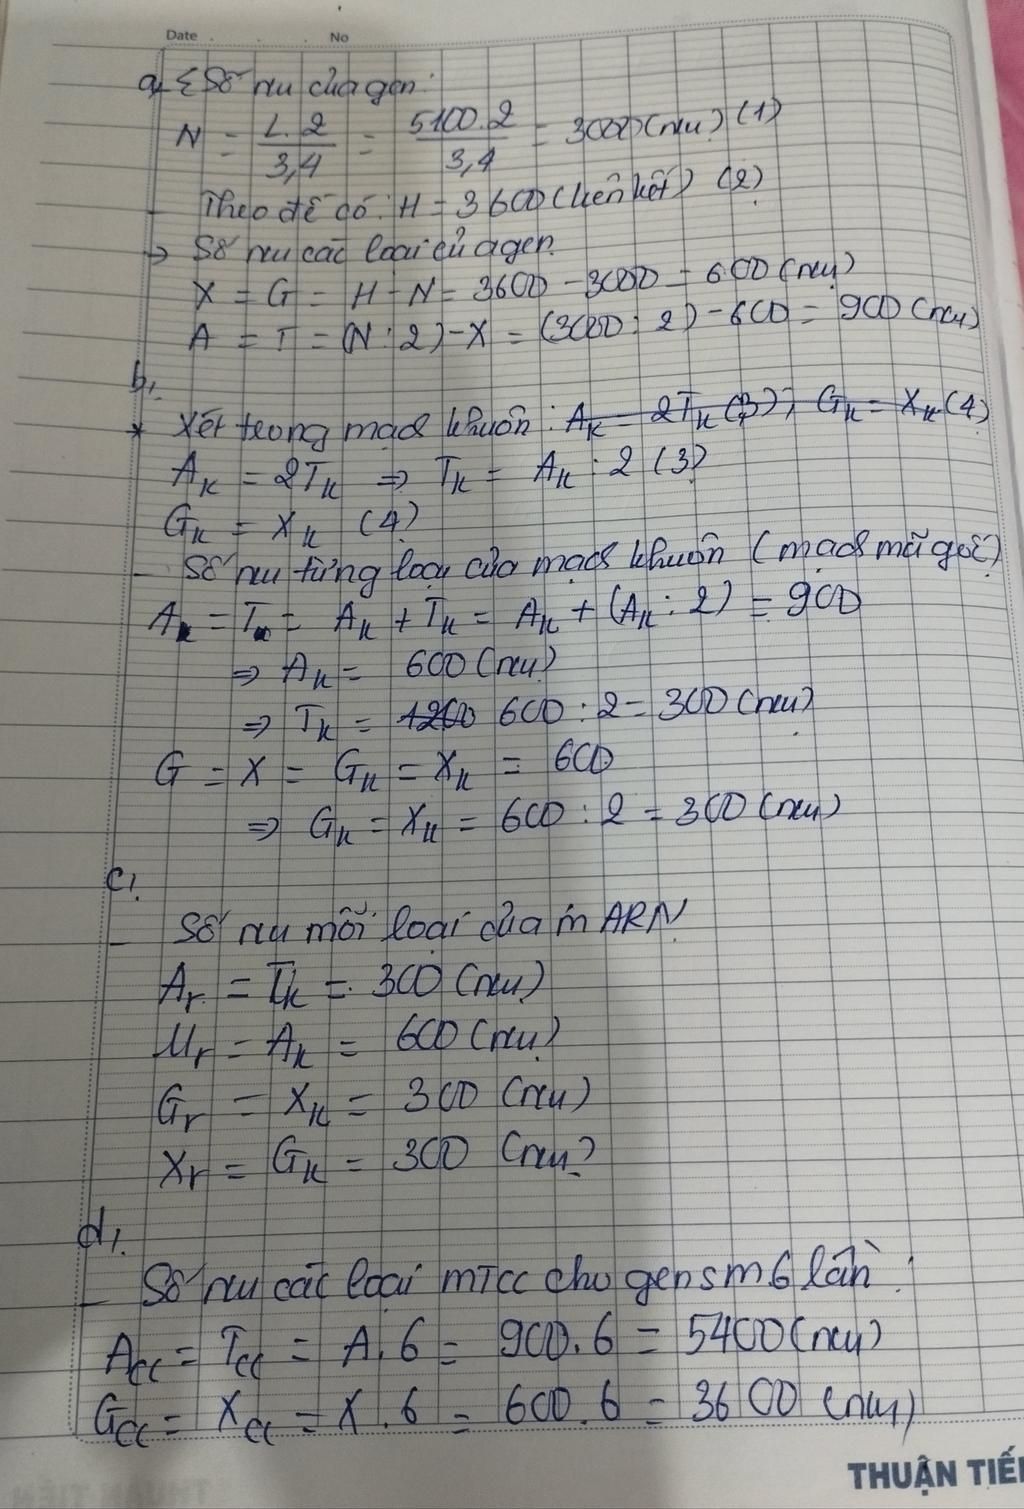 Date . . . No
a, Σ Số nu của gen:
N = L.2/3,4 = 5100.2/3,4 = 3000 (nu) (1)
- Theo đề có: H = 3600 (liên kết) (2)
→ Số nu các loại của gen.
X = G = H - N = 3600 - 3000 = 600 (nu)
A = T = (N : 2) - X = (3000 : 2) - 600 = 900 (nu)
b,
* Xét trong mạch khuôn: Ak = 2Tk (3); Gk = Xk (4)
Ak = 2Tk ⇒ Tk = Ak : 2 (3)
Gk = Xk (4)
- Số nu từng loại của mạch khuôn (mạch mã gốc)
A = T = Ak + Tk = Ak + (Ak : 2) = 900
⇒ Ak = 600 (nu)
⇒ Tk = 1200 600 : 2 = 300 (nu)
G = X = Gk = Xk = 600
⇒ Gk = Xk = 600 : 2 = 300 (nu)
c,
- Số nu mỗi loại của mARN
Ar = Tk = 300 (nu)
Ur = Ak = 600 (nu)
Gr = Xk = 300 (nu)
Xr = Gk = 300 (nu)
d,
- Số nu các loại mTcc cho gen sm 6 lần:
Acc = Tcc = A.6 = 900.6 = 5400 (nu)
Gcc = Xcc = X.6 = 600.6 = 3600 (nu)
THUẬN TIẾ